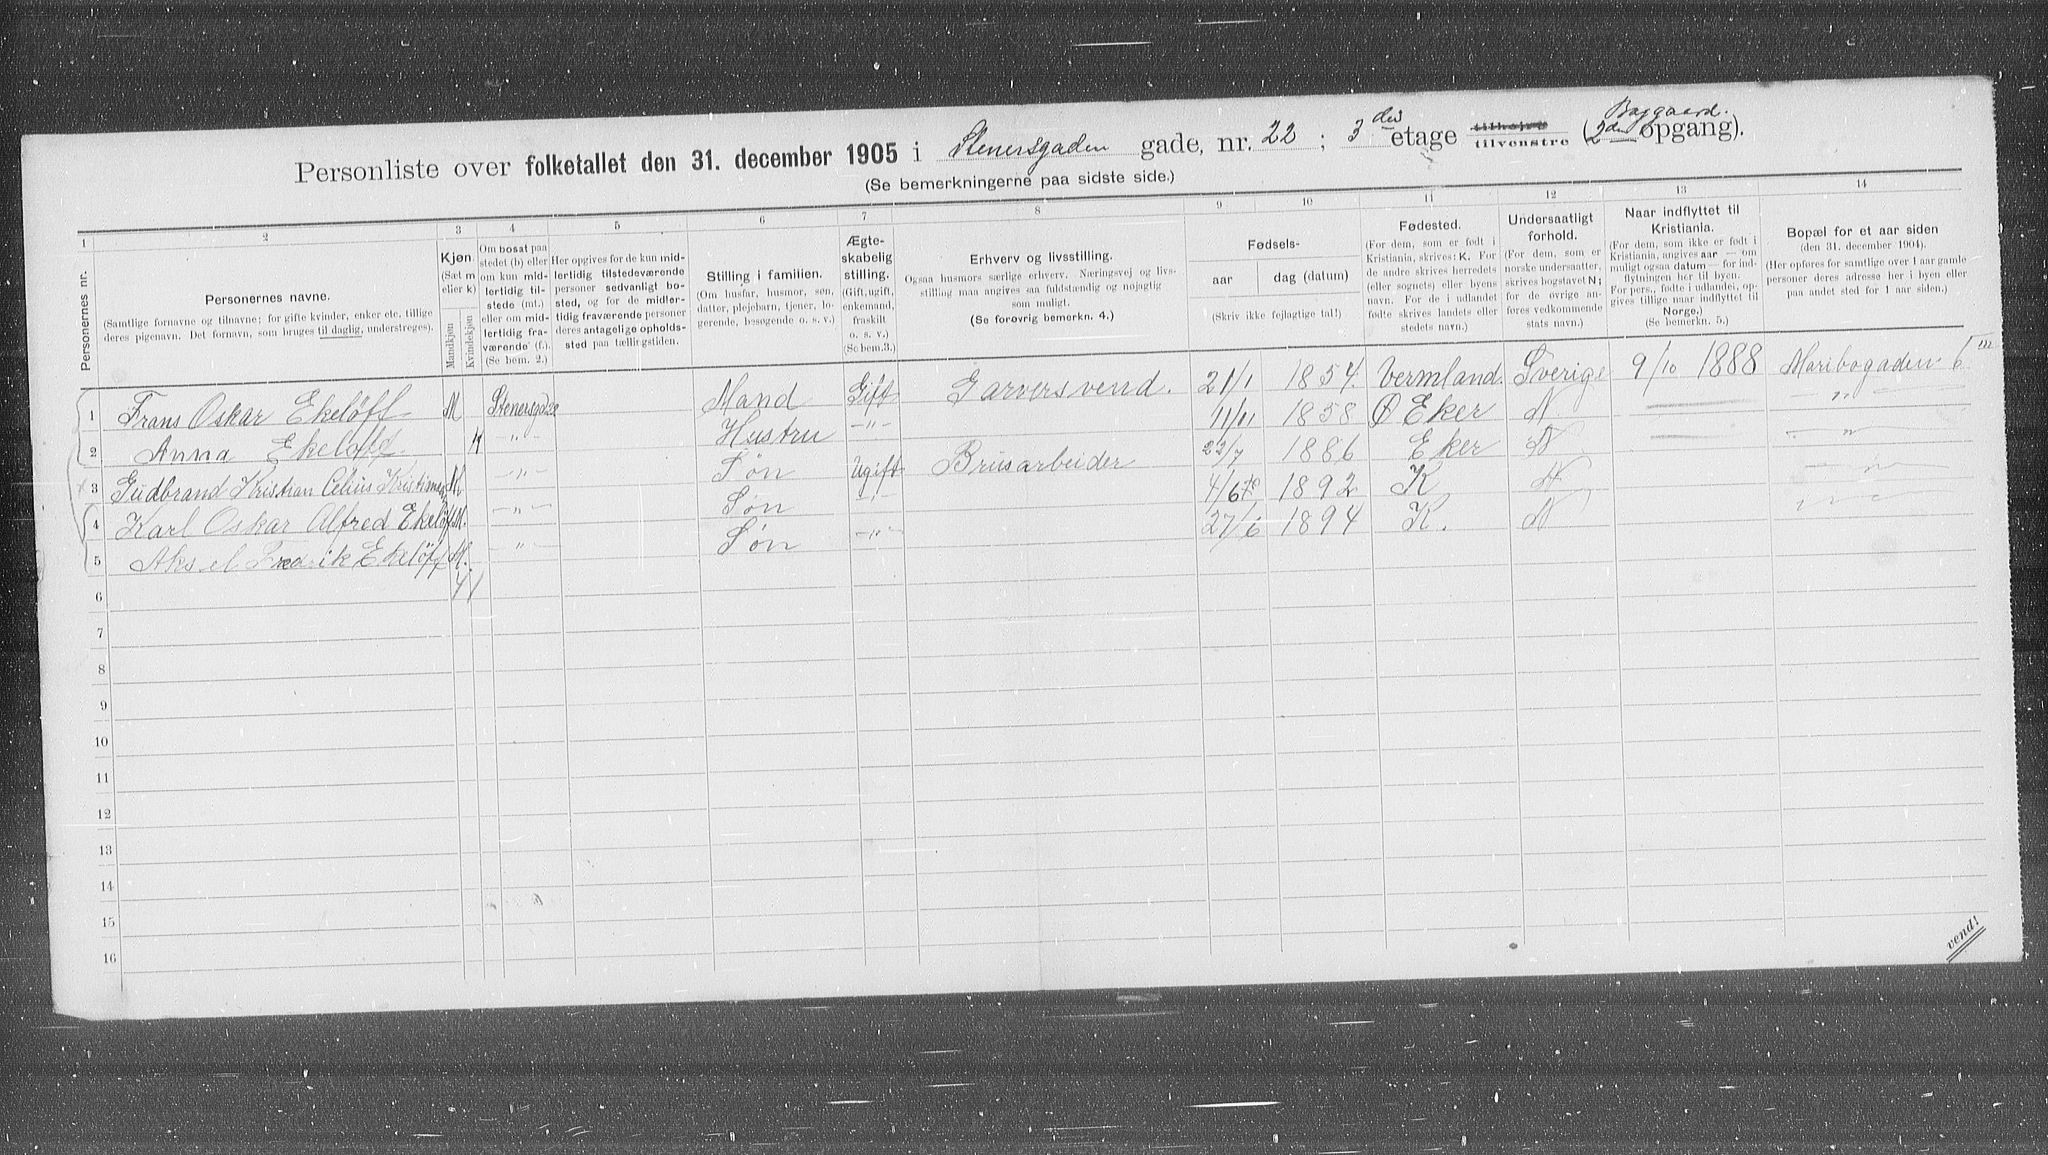 Personliste over folketallet den 31. december 1905 i Stenersgaden gade, nr. 22 ; 3 die etage tilhøjre tilvenstre (2den opgang). Baggaard.
(Se bemerkningerne paa sidste side.)
1 2 3 4 5 6 7 8 9 10 11 12 13 14
Personernes nr.
Personernes navne.
(Samtlige fornavne og tilnavne; for gifte kvinder, enker etc. tillige deres pigenavn. Det fornavn, som bruges til daglig, understreges).
Kjøn. (Sæt m eller k)
Mandkjøn Kvindekjøn
Om bosat paa stedet (b) eller om kun midlertidig tilstede (mt.) eller om midlertidig fraværende (f.). (Se bem. 2.)
Her opgives for de kun midlertidig tilstedeværende personer sedvanligt bosted, og for de midlertidig fraværende personer deres antagelige opholdssted paa tællingstiden.
Stilling i familien.
(Om husfar, husmor, søn, datter, plejebarn, tjener, logerende, besøgende o. s. v.)
Ægteskabelig stilling.
(Gift, ugift, enkemand, fraskilt o. s. v.) (Se bem. 3.)
Erhverv og livsstilling.
Ogsaa husmors særlige erhverv. Næringsvej og livsstilling maa angives saa fuldstændig og nøjagtig som muligt.
(Se forøvrig bemerkn. 4.)
Fødsels-
aar dag (datum)
(Skriv ikke fejlagtige tal!)
Fødested.
(For dem, som er født i Kristiania, skrives: K. For de andre skrives herredets (eller sognets) eller byens navn. For de i udlandet fødte skrives landets eller stedets navn.)
Undersaatligt forhold.
(For dem, som er norske undersaatter, skrives bogstavet N; for de øvrige anføres vedkommende stats navn.)
Naar indflyttet til Kristiania.
(For dem, som ikke er født i Kristiania, angives aar — om muligt ogsaa datum — for indflytningen her til byen. For pers., fødte i udlandet, opgives tillige naar indflyttet til Norge.) (Se bemerkn. 5.)
Bopæl for et aar siden
(den 31. december 1904).
(Her opføres for samtlige over 1 aar gamle personer deres adresse her i byen eller paa andet sted for 1 aar siden.)
1 Frans Oskar Ekelöff M Stenersgade Mand Gift Garversvend. 21/1 1854. Vermland. Sverige 9/10 1888 Maribogaden 6 III
2 Anna Ekeloff. K -"- Hustru -"- 11/11 1858 Ø Eker N -"-
3 Gudbrand Kristian Celius Kristiansen M -"- Søn Ugift Brusarbeider 22/7 1886 Eker N -"-
4 Karl Oskar Alfred Ekelöf M. -"- Søn -"- 4/6 1892 K N -"-
5 Aksel Fredrik Ekelöff M. -"- Søn -"- 27/6 1894 K. N -"-
6 4/1
7
8
9
10
11
12
13
14
15
16
vend!